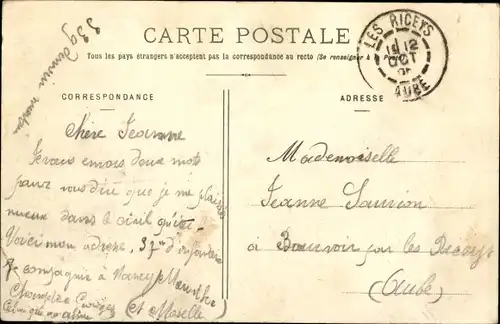 CARTE POSTALE
Tous les pays étrangers n'acceptent pas la correspondance au recto (Se renseigner à la Poste)
CORRESPONDANCE
ADRESSE
LES RICEYS
12
OCT
AUBE
Chère Jeanne
Je vous envois deux mots
pour vous dire que je me plaisais
mieux dans le civil qu'ici.
Voici mon adresse, 37me d'infanterie
compagnie à Nancy Meurthe
(et Moselle)
Mademoiselle
Jeanne
à Beauvoir par les Riceys
(Aube)